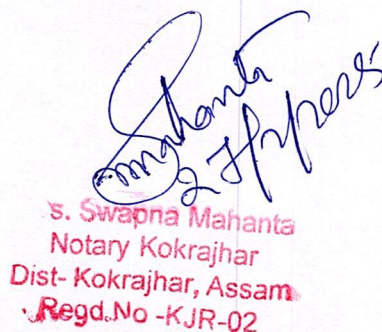 Smahanta
S. Swapna Mahanta
Notary Kokrajhar
Dist- Kokrajhar, Assam
Regd.No -KJR-02